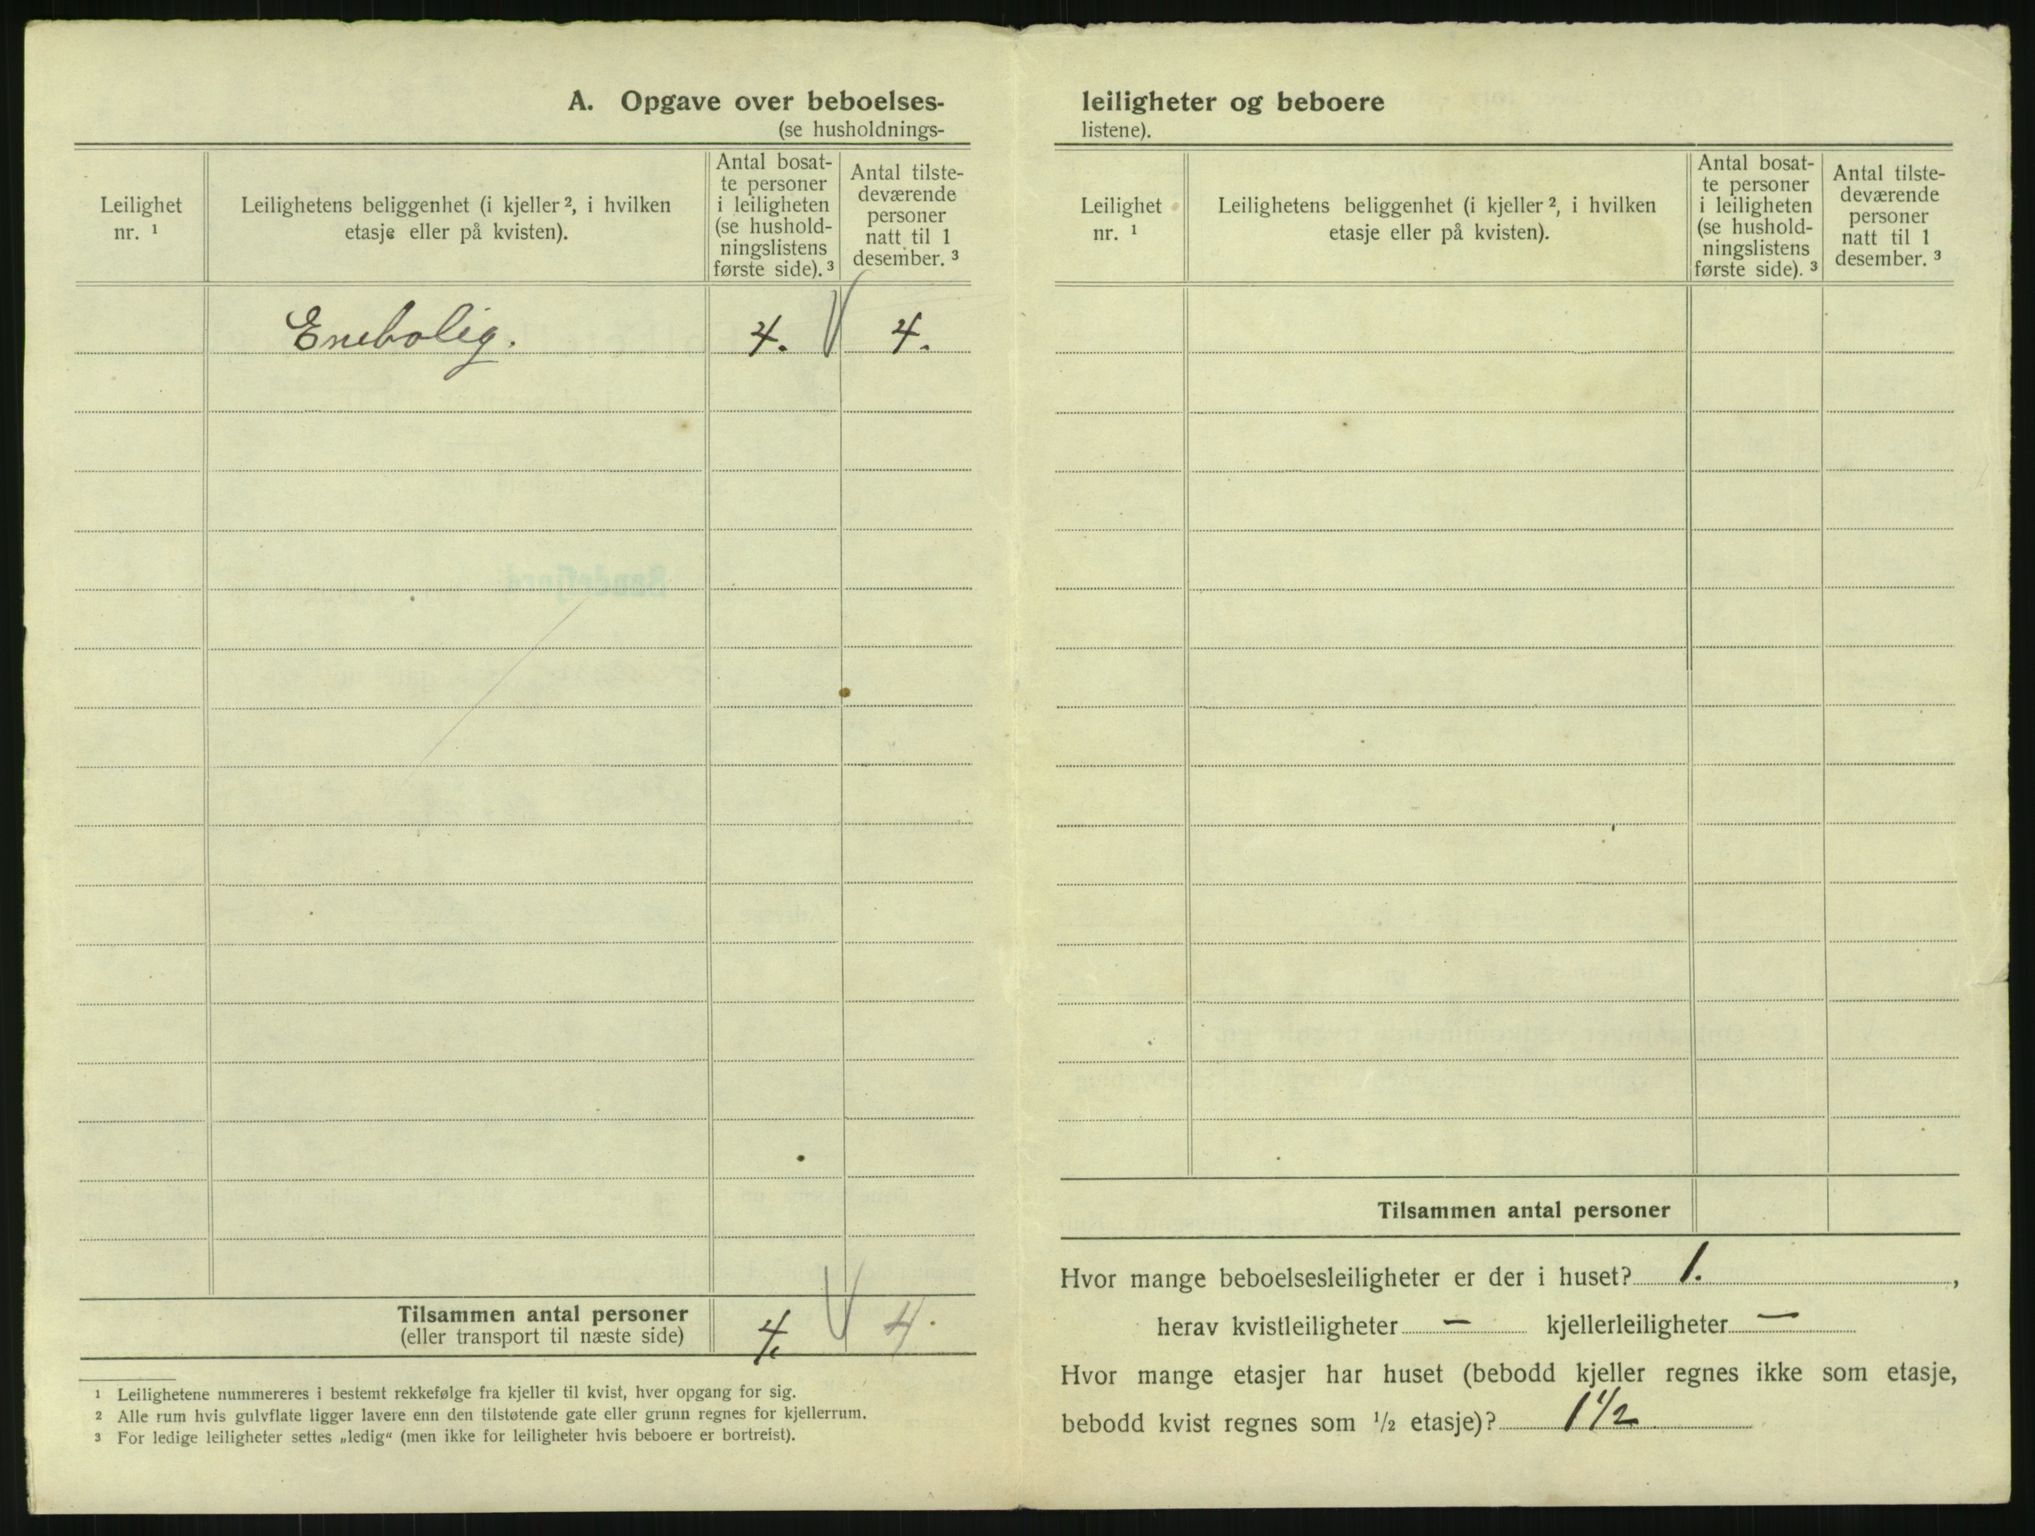 A. Opgave over beboelses-
(se husholdnings-
Leilighet
nr. ¹
Leilighetens beliggenhet (i kjeller ², i hvilken
etasje eller på kvisten).
Antal bosat-
te personer
i leiligheten
(se hushold-
ningslistens
første side). ³
Antal tilste-
deværende
personer
natt til 1
desember. ³
Enebolig. 4. 4.
Tilsammen antal personer
(eller transport til næste side) 4. 4.
¹ Leilighetene nummereres i bestemt rekkefølge fra kjeller til kvist, hver opgang for sig.
² Alle rum hvis gulvflate ligger lavere enn den tilstøtende gate eller grunn regnes for kjellerrum.
³ For ledige leiligheter settes „ledig“ (men ikke for leiligheter hvis beboere er bortreist).
leiligheter og beboere
listene).
Leilighet
nr. ¹
Leilighetens beliggenhet (i kjeller ², i hvilken
etasje eller på kvisten).
Antal bosat-
te personer
i leiligheten
(se hushold-
ningslistens
første side). ³
Antal tilste-
deværende
personer
natt til 1
desember. ³
Tilsammen antal personer
Hvor mange beboelsesleiligheter er der i huset? 1. ,
herav kvistleiligheter — kjellerleiligheter —
Hvor mange etasjer har huset (bebodd kjeller regnes ikke som etasje,
bebodd kvist regnes som ½ etasje)? 1 ½